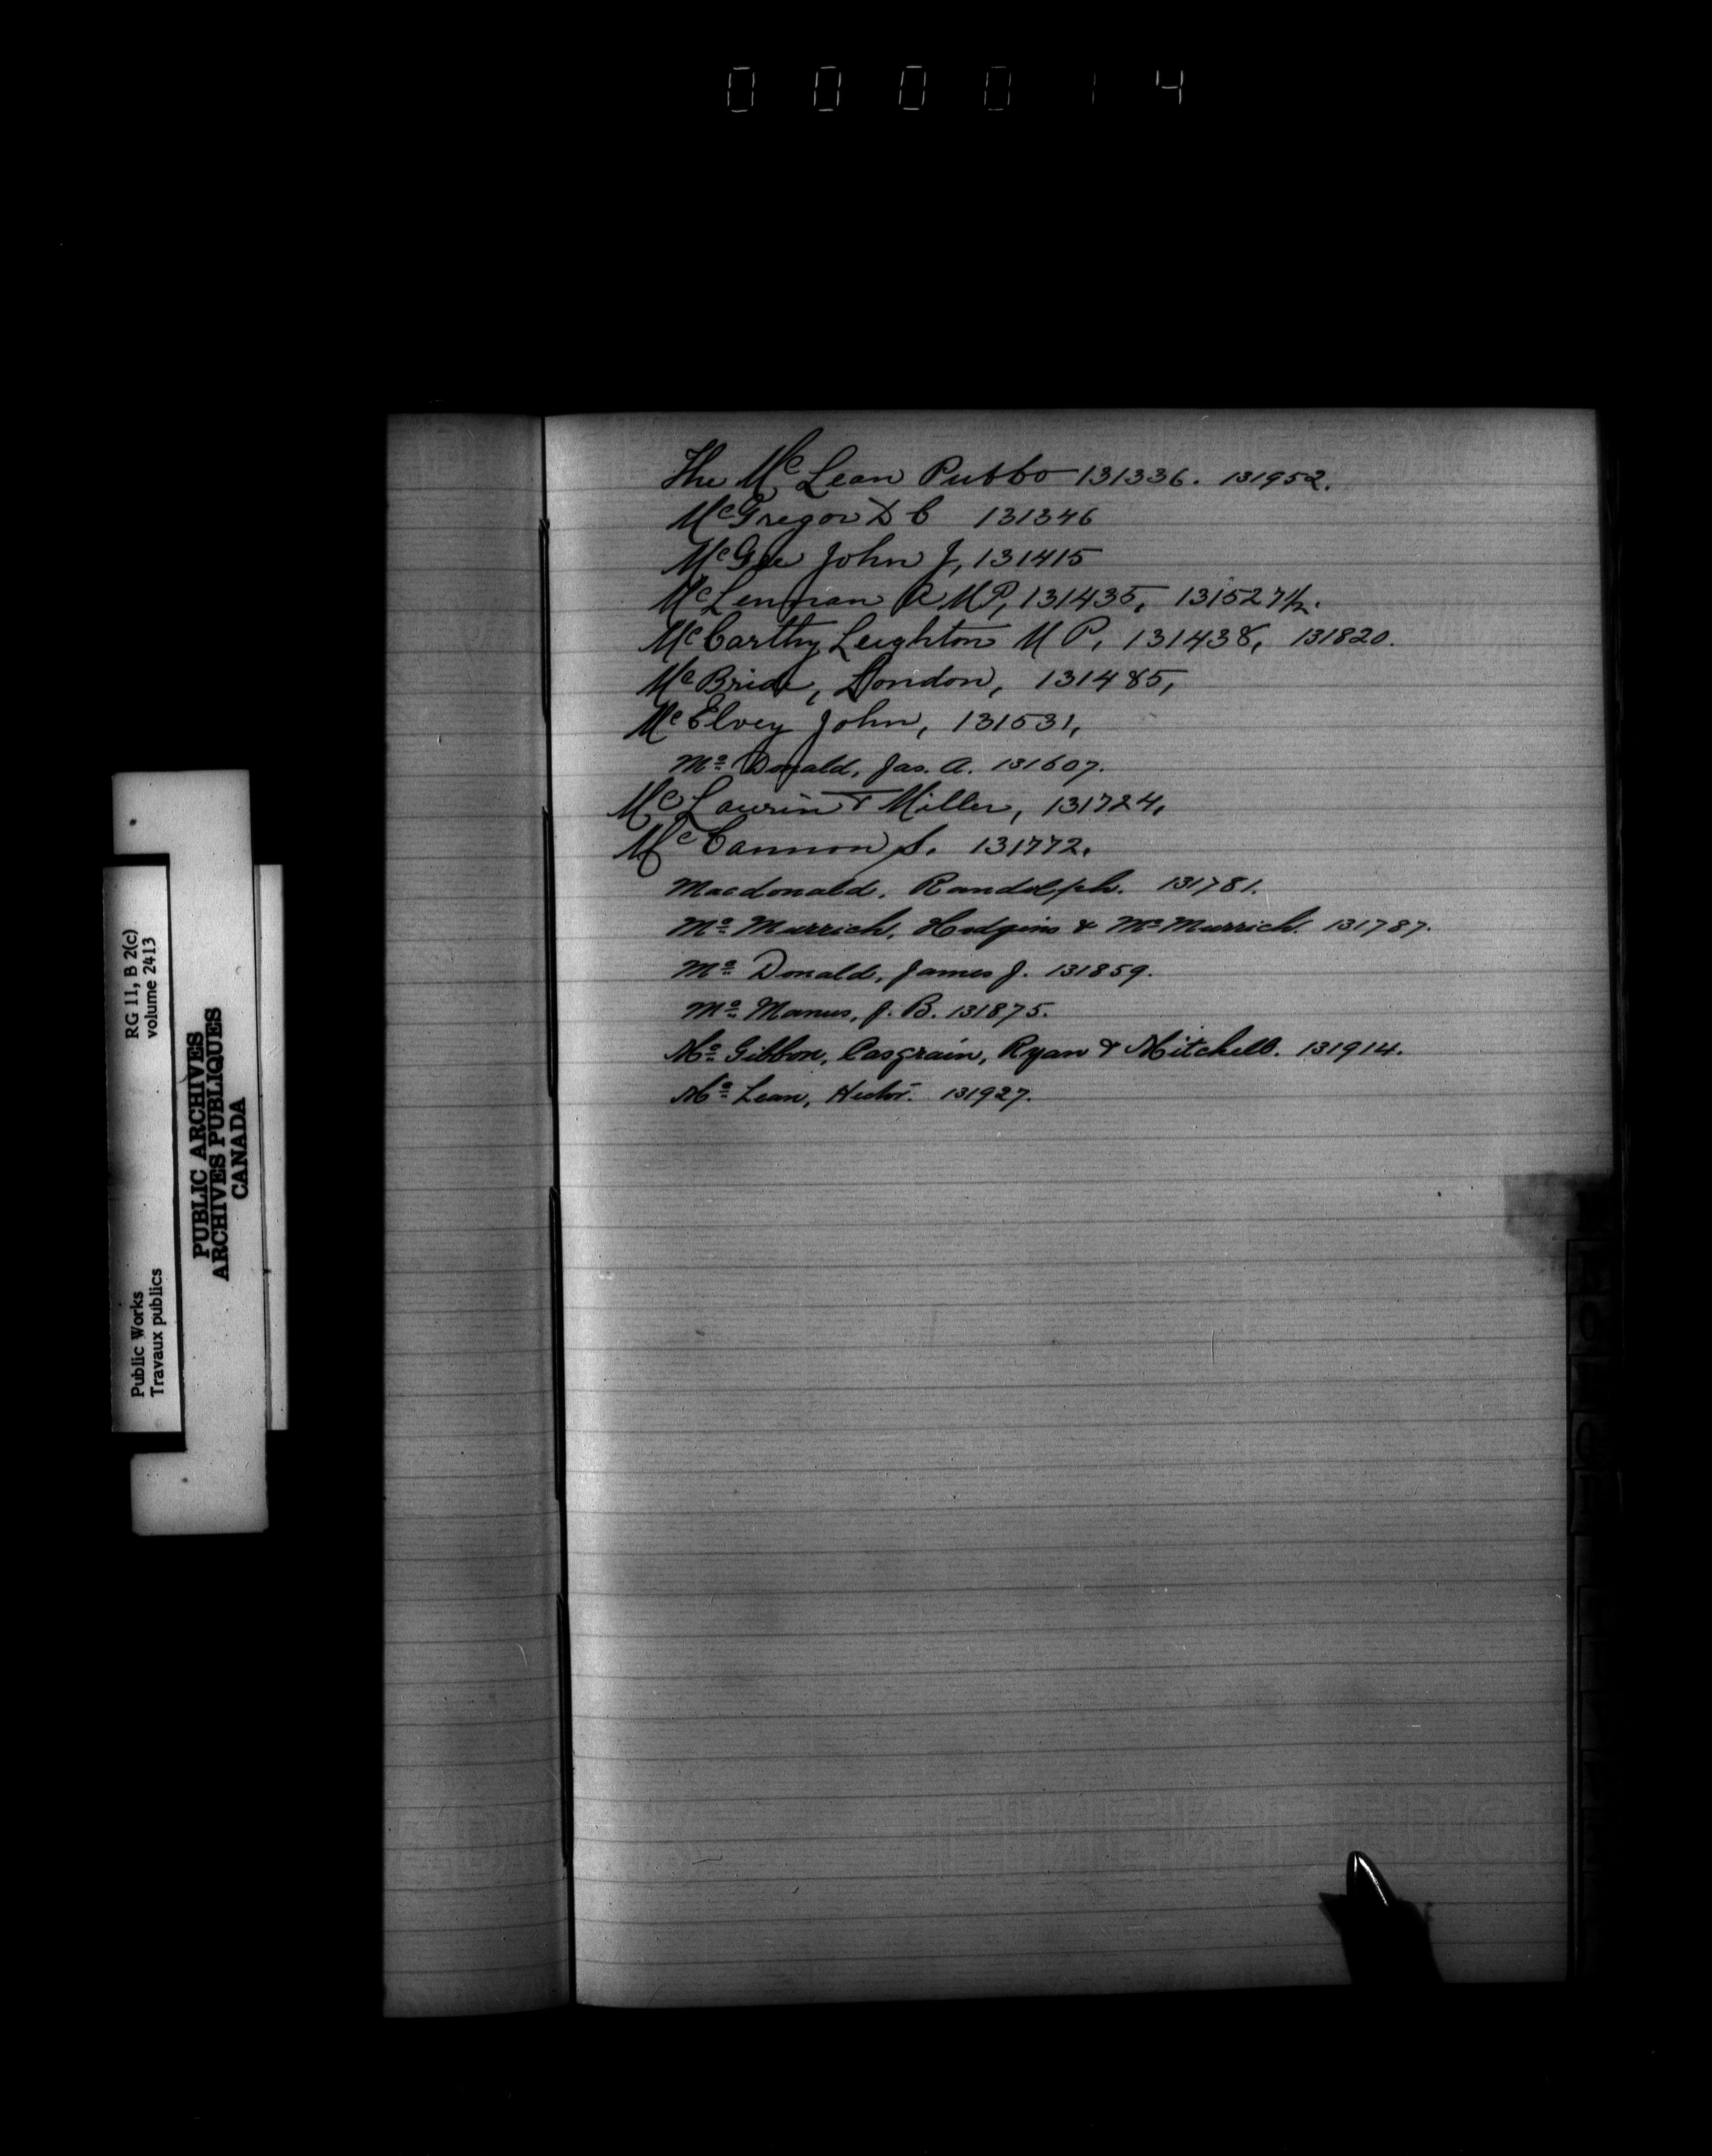 000014
The McLean Pub Co 131336. 131952.
McGregor D C 131346
McGee John J, 131415
McLennan A MP, 131435, 131527½.
McCarthy Leighton M P, 131438, 131820.
McBride, London, 131485,
McElvey John, 131531,
McDonald, Jas. A. 131607.
McLaurin & Miller, 131724,
McCannon S. 131772.
Macdonald, Randolph. 131781.
McMurrich, Hodgins & McMurrich. 131787.
McDonald, James J. 131859.
McManus, J. B. 131875.
McGibbon, Casgrain, Ryan & Mitchell. 131914.
McLean, Hector. 131927.
RG 11, B 2(c)
volume 2413
Public Works
Travaux publics
PUBLIC ARCHIVES
ARCHIVES PUBLIQUES
CANADA